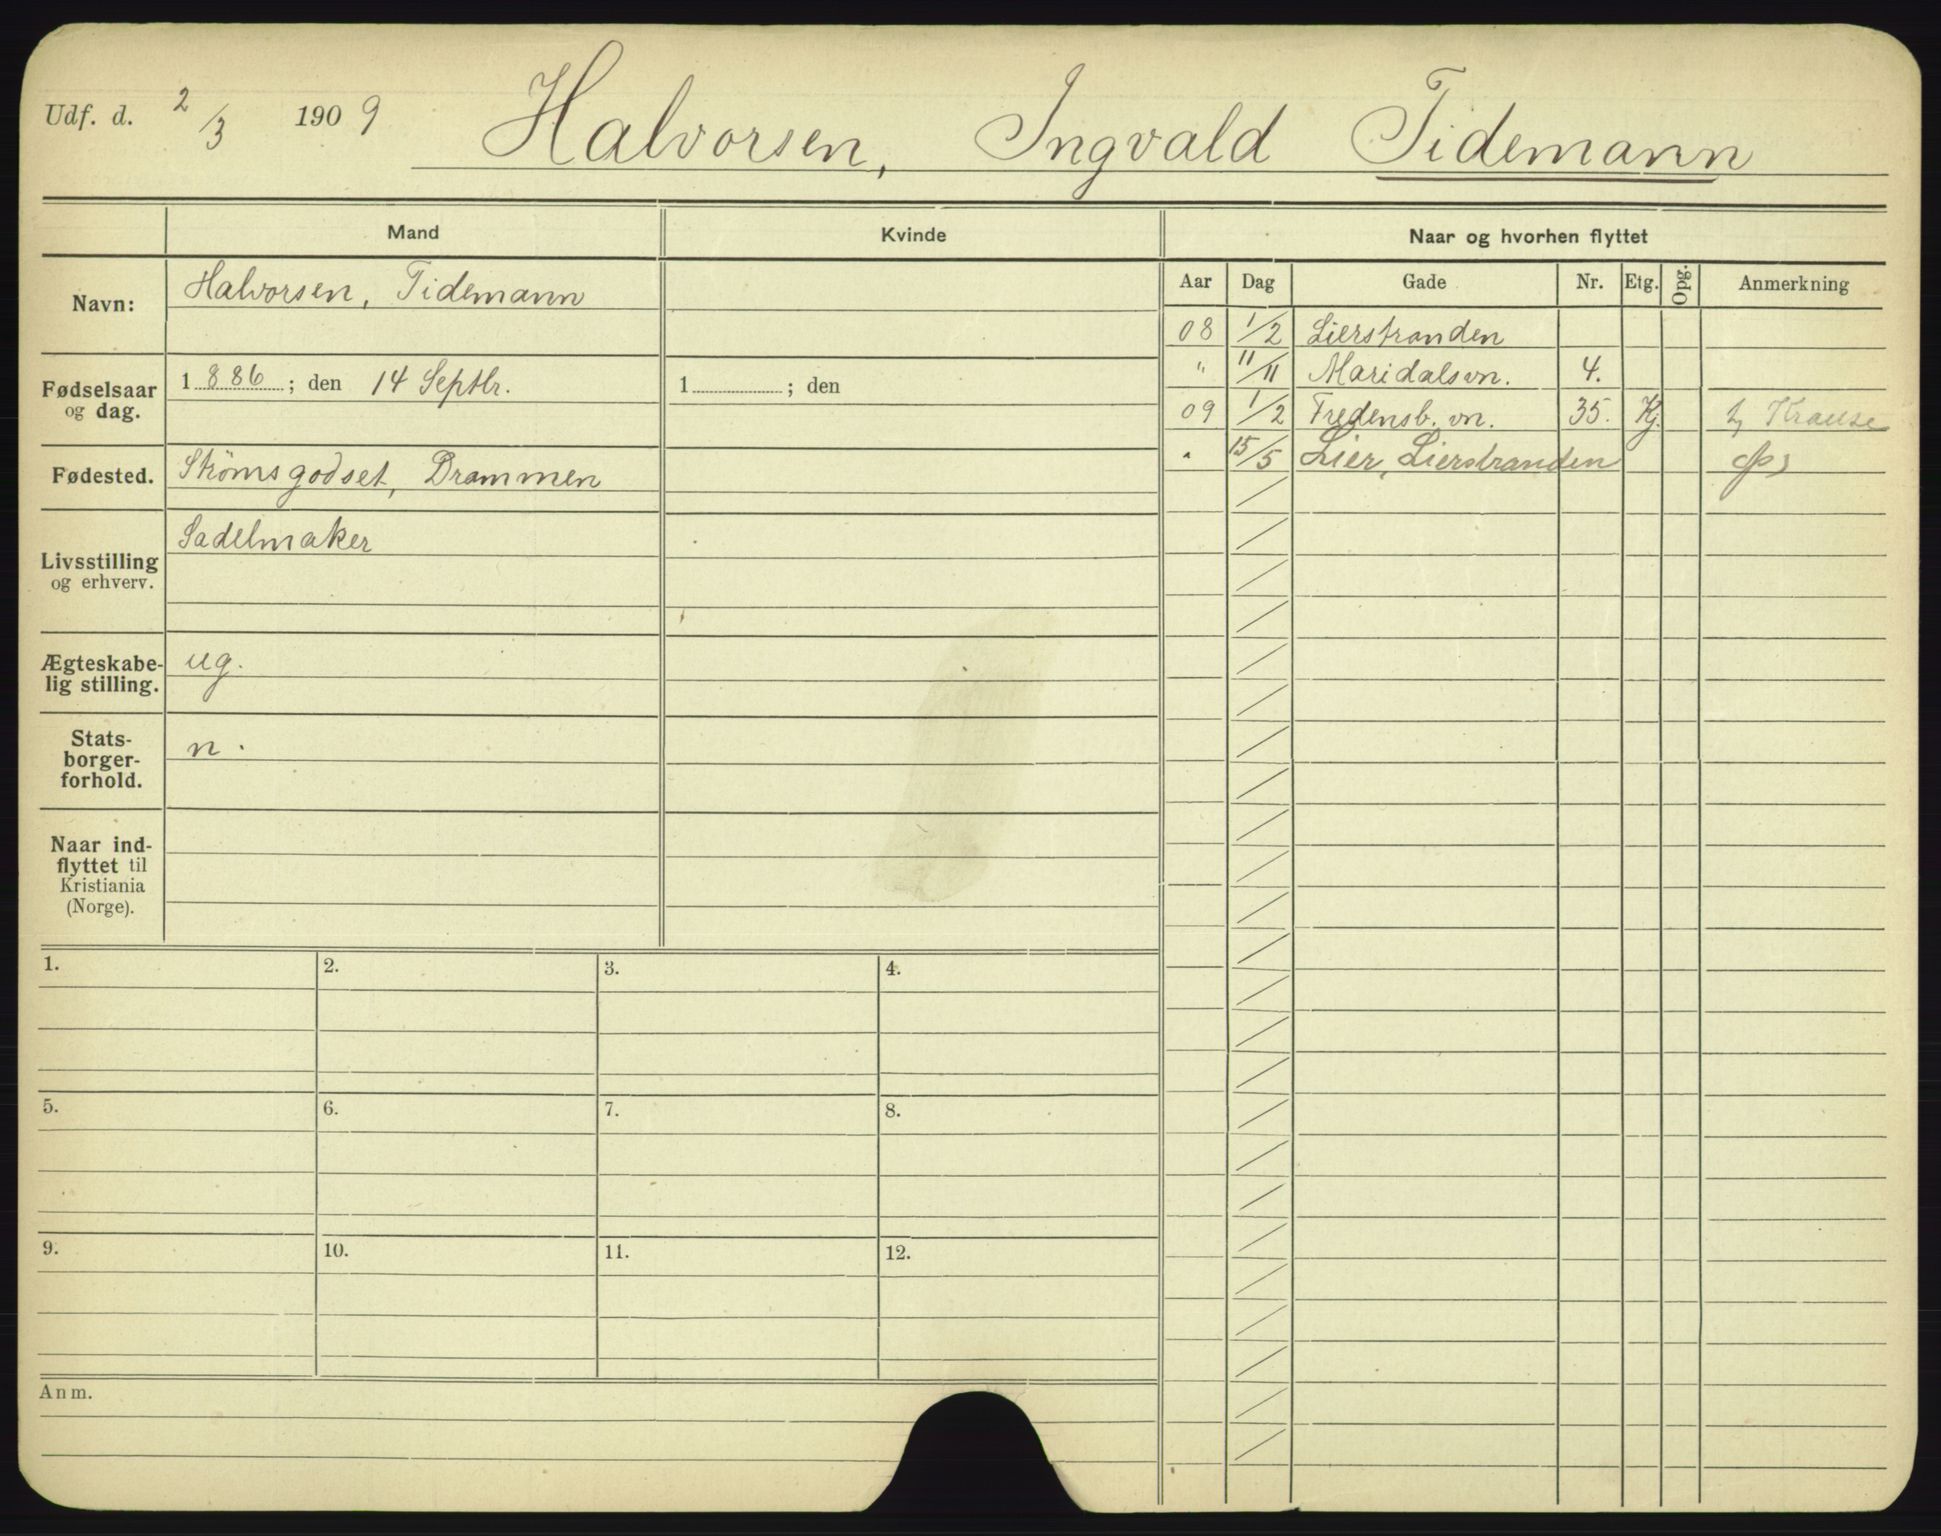 Udf. d. 2/3 1909 Halvorsen, Ingvald Tidemann
Mand Kvinde Naar og hvorhen flyttet
Aar Dag Gade Nr. Etg. Opg. Anmerkning
Navn: Halvorsen, Tidemann
08 1/2 Lierstranden
" 11/11 Maridalsvn. 4.
Fødselsaar og dag. 1 886 ; den 14 Septbr. 1 ; den
09 1/2 Fredensb. vn. 35. Kj. Krause
" 15/5 Lier, Lierstranden
Fødested. Strömsgodset, Drammen
Livsstilling og erhverv. Sadelmaker
Ægteskabe-
lig stilling. ug.
Stats-
borger-
forhold. n.
Naar ind-
flyttet til
Kristiania
(Norge).
1. 2. 3. 4.
5. 6. 7. 8.
9. 10. 11. 12.
Anm.